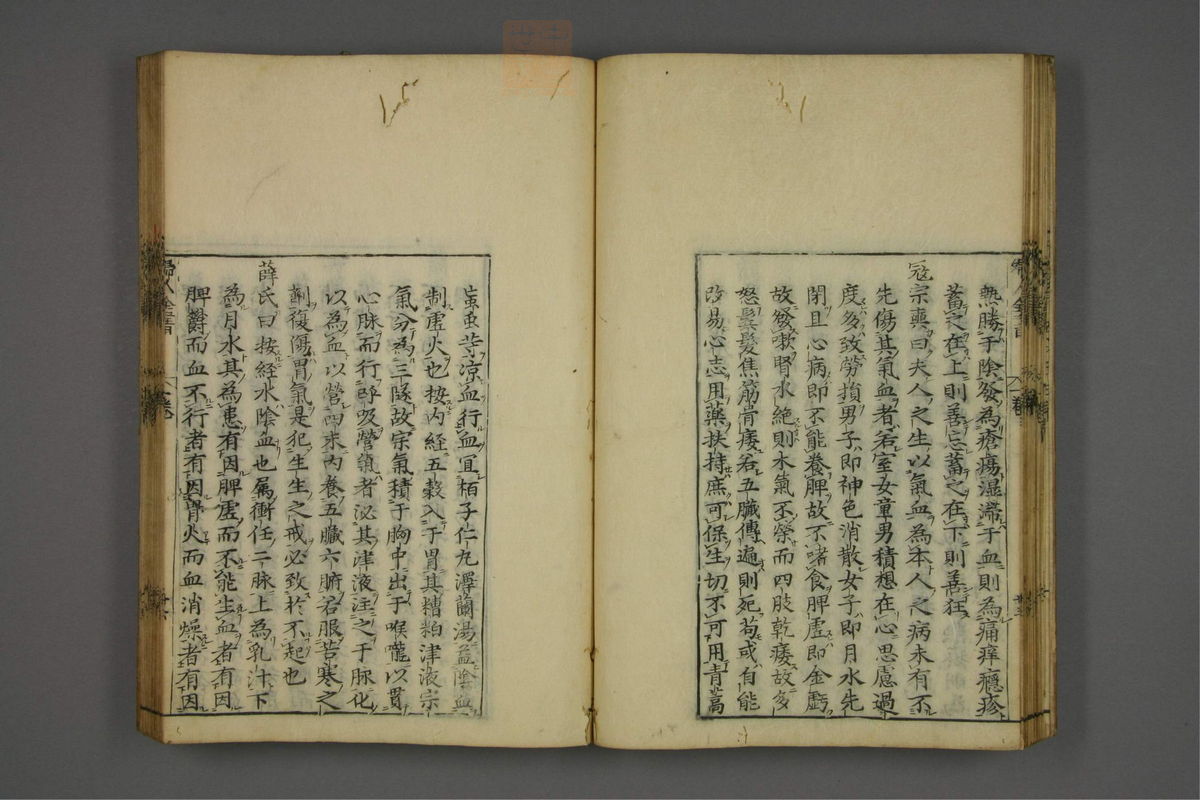 熱勝于陰發為瘡瘍濕滯于血則為痛痒癮疹
蓄之在上則善忘蓄之在下則善狂
冦宗奭曰夫人之生以氣血為本人之病未有不
先傷其氣血者若室女童男積想在心思慮過
度多致勞損男子即神色消散女子即月水先
閉且心病即不能養脾故不嗜食脾虛即金虧
故發嗽腎水絕則木氣不榮而四肢乾痿故多
怒鬂髮焦筋骨痿若五臟傳遍則死苟或自能
改易心志用藥扶持庶可保生切不可用青蒿
虻虫等凉血行血宜栢子仁丸澤蘭湯益陰血
制虛火也按内經五穀入于胃其糟粕津液宗
氣分為三隧故宗氣積于胸中出于喉嚨以貫
心脉而行呼吸營氣者泌其津液注之于脉化
以為血以營四末内養五臟六腑若服苦寒之
劑復傷胃氣是犯生生之戒必致於不起也
薛氏曰按経水陰血也属衝任二脉上為乳汁下
為月水其為患有因脾虛而不能生血者有因
脾欝而血不行者有因胃火而血消燥者有因